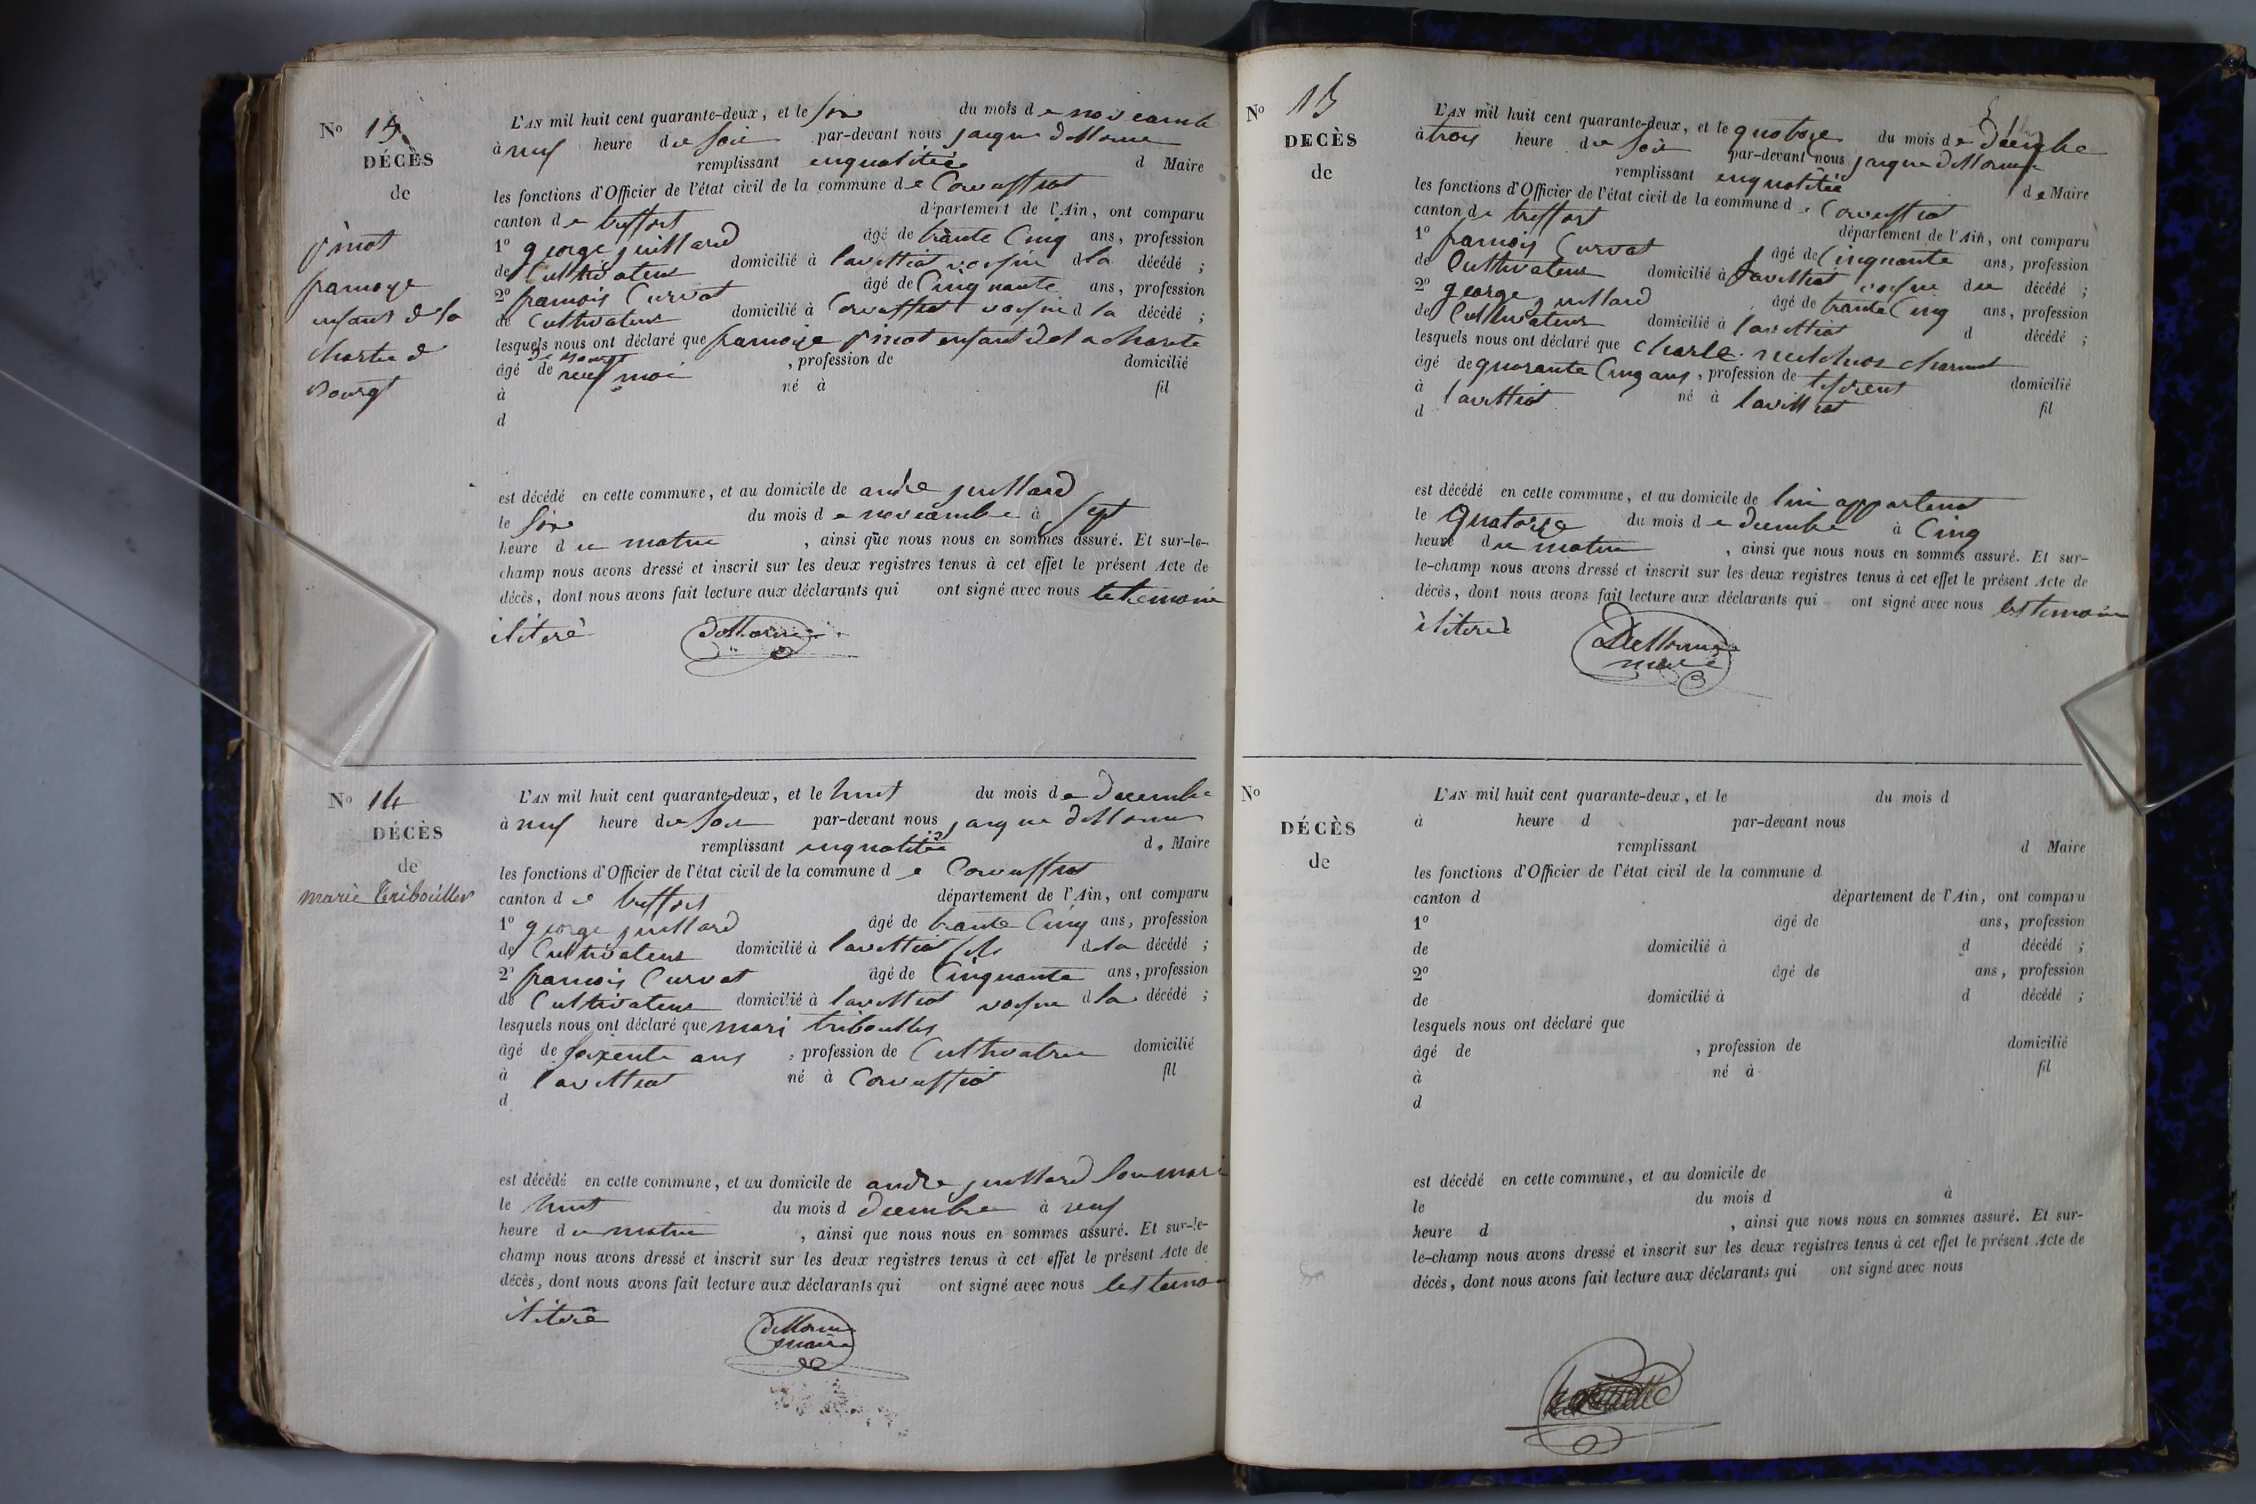 No 13
DÉCÈS
de
pinot
franoije
enfant d la
charte d
Bourgt
L'AN mil huit cent quarante-deux, et le six du mois de novembre
à neuf heure de soir par-devant nous jaque
remplissant enqualitée d Maire
les fonctions d'Officier de l'état civil de la commune de Corveissiat
canton de treffort département de l'Ain, ont comparu
1o george juillard âgé de trante Cinq ans, profession
de Cultivateur domicilié à lavilliat voisin d la décédé ;
2o francois Curvat âgé de Cinquante ans, profession
de Cultivateur domicilié à Corveissiat voisin d la décédé ;
lesquels nous ont déclaré que franoije pinot enfant de la charete
de Bourgt
âgé de neuf moi , profession de domicilié
à né à fil
d
est décédé en cette commune, et au domicile de andre juillard
le six du mois de novembre à sept
heure du matin , ainsi que nous nous en sommes assuré. Et sur-le-
champ nous avons dressé et inscrit sur les deux registres tenus à cet effet le présent Acte de
décès, dont nous avons fait lecture aux déclarants qui ont signé avec nous
iliterè
No 14
DÉCÈS
de
marie Tribouiller
L'AN mil huit cent quarante-deux, et le huit du mois de decembre
à neuf heure de soir par-devant nous jaque
remplissant enqualitée d. Maire
les fonctions d'Officier de l'état civil de la commune de Corveissiat
canton de treffort département de l'Ain, ont comparu
1o george juillard âgé de trante Cinq ans, profession
de Cultivateur domicilié à lavilliat fils de la décédé ;
2o francois Curvat âgé de Cinquante ans, profession
de Cultivateur domicilié à lavilliat voisin d la décédé ;
lesquels nous ont déclaré que mari tribouller
âgé de soixente ans , profession de Cultivatrice domicilié
à lavilliat né à Corveissiat fil
d
est décédé en cette commune, et au domicile de andre juillard son mari
le huit du mois d decembre à neuf
heure du matin , ainsi que nous nous en sommes assuré. Et sur-le-
champ nous avons dressé et inscrit sur les deux registres tenus à cet effet le présent Acte de
décès, dont nous avons fait lecture aux déclarants qui ont signé avec nous les temo
iliterè
maire
No 15
DÉCÈS
de
L'AN mil huit cent quarante-deux, et le quatorze du mois de decembre
à trois heure de soir par-devant nous jaque
remplissant enqualitée de Maire
les fonctions d'Officier de l'état civil de la commune de Corveissiat
canton de treffort département de l'Ain, ont comparu
1o francois Curvat âgé de Cinquante ans, profession
de Cultivateur domicilié à lavilliat voisin du décédé ;
2o george juillard âgé de trante Cinq ans, profession
de Cultivateur domicilié à lavilliat d décédé ;
lesquels nous ont déclaré que charle
âgé de quarante Cinq ans, profession de domicilié
à lavilliat né à lavilliat fil
d
est décédé en cette commune, et au domicile de lui appartenant
le quatorze du mois de decembre à Cinq
heure du matin , ainsi que nous nous en sommes assuré. Et sur-
le-champ nous avons dressé et inscrit sur les deux registres tenus à cet effet le présent Acte de
décès, dont nous avons fait lecture aux déclarants qui ont signé avec nous les temoin
iliterè
maire
No
DÉCÈS
de
L'AN mil huit cent quarante-deux, et le du mois d
à heure d par-devant nous
remplissant d Maire
les fonctions d'Officier de l'état civil de la commune d
canton d département de l'Ain, ont comparu
1o âgé de ans, profession
de domicilié à d décédé ;
2o âgé de ans, profession
de domicilié à d décédé ;
lesquels nous ont déclaré que
âgé de , profession de domicilié
à né à fil
d
est décédé en cette commune, et au domicile de
le du mois d à
heure d , ainsi que nous nous en sommes assuré. Et sur-
le-champ nous avons dressé et inscrit sur les deux registres tenus à cet effet le présent Acte de
décès, dont nous avons fait lecture aux déclarants qui ont signé avec nous